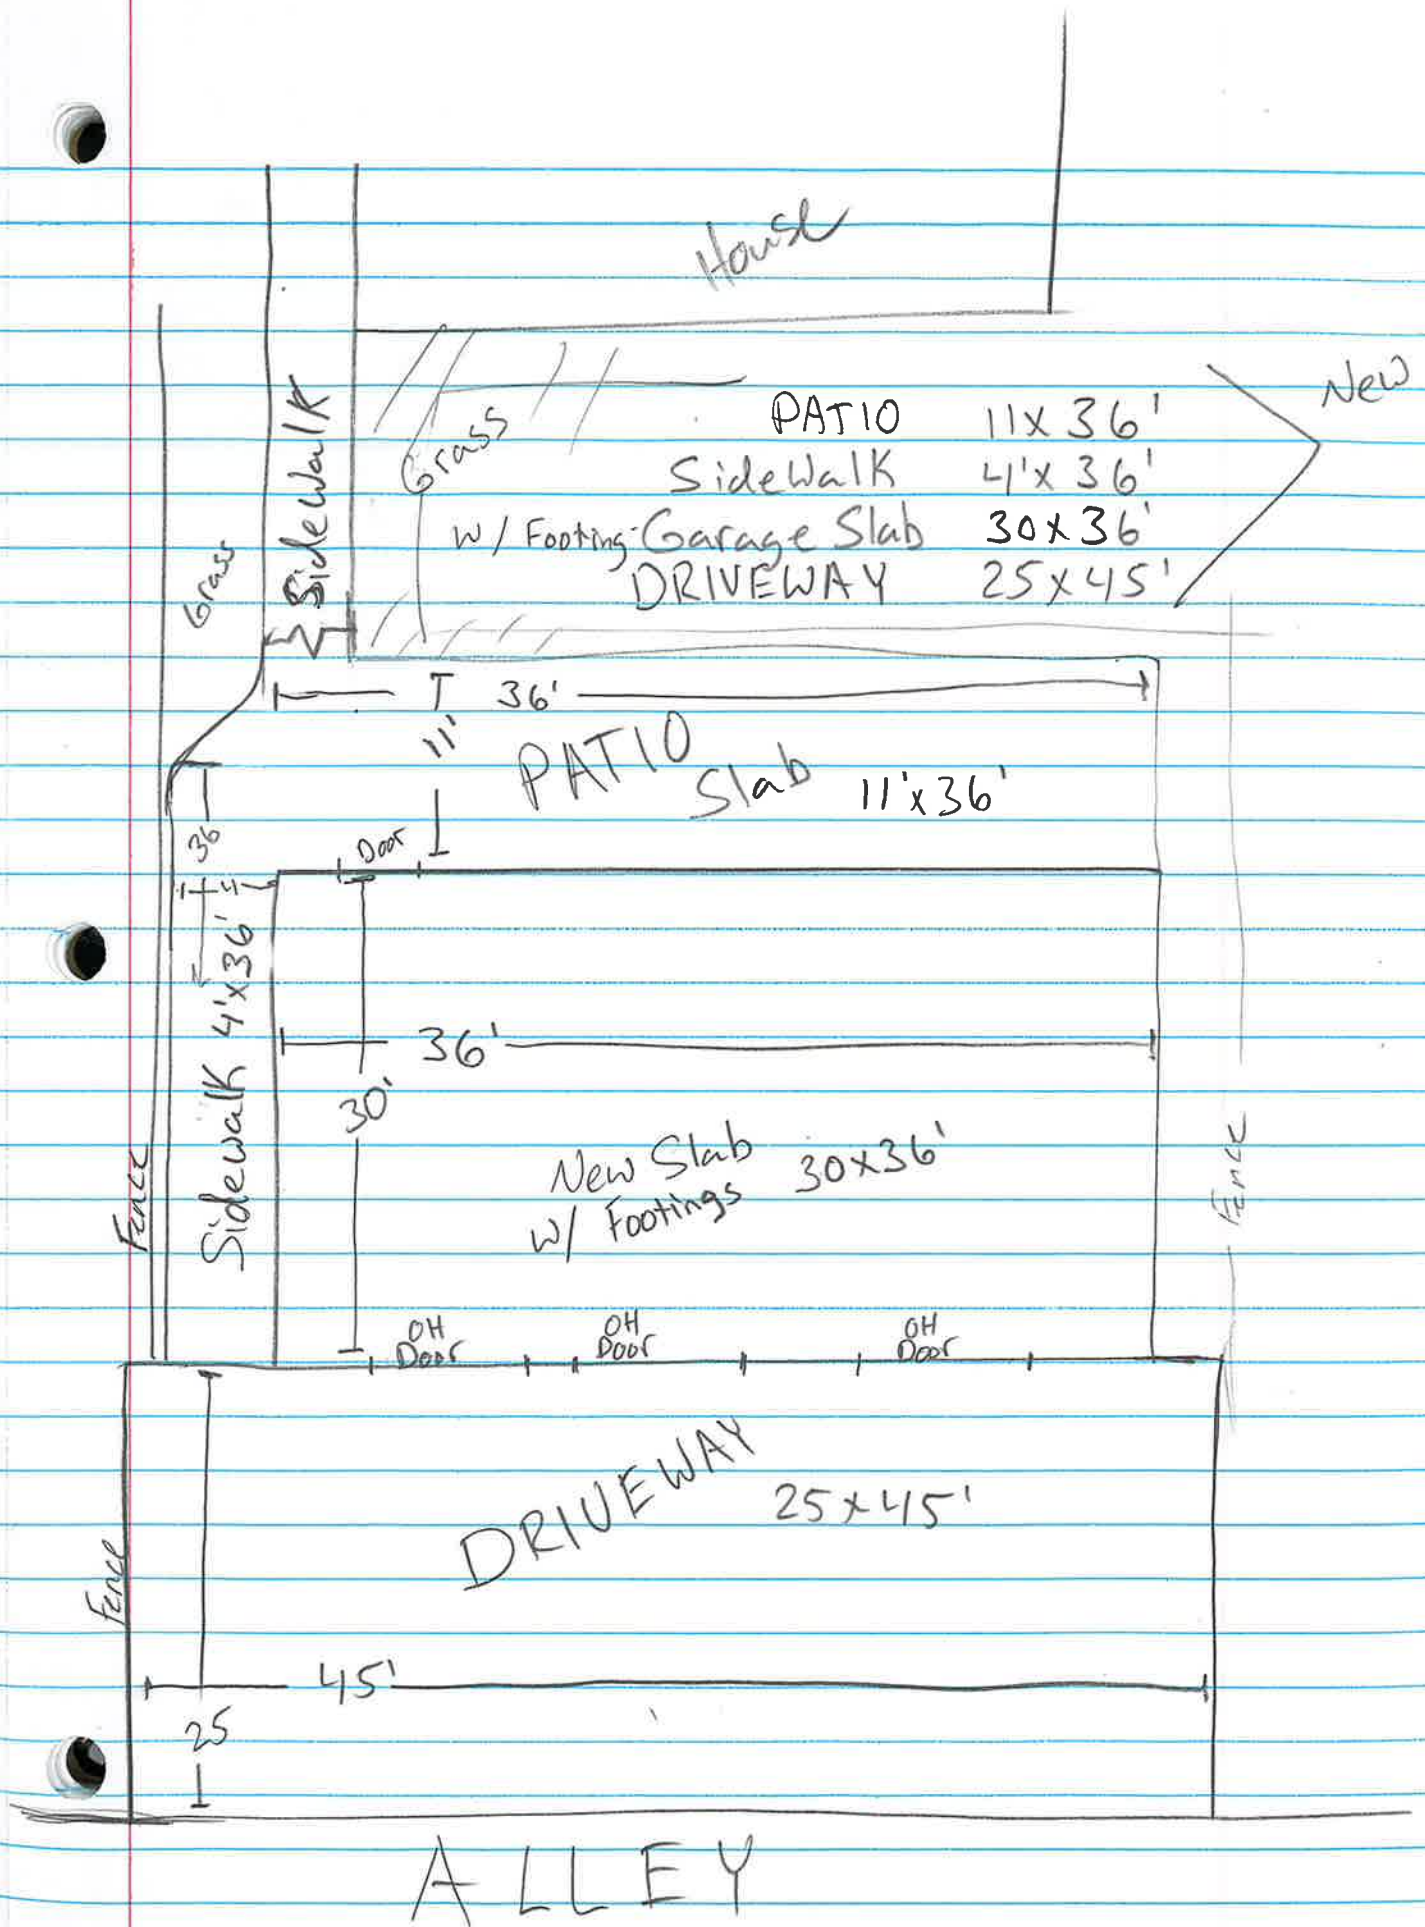 House
New
PATIO 11x36'
Sidewalk 4'x36'
w/ Footing-Garage Slab 30x36'
DRIVEWAY 25x45'
Grass
Sidewalk
Grass
36'
11'
PATIO
Slab 11'x36'
36
Door
4'
Sidewalk 4'x36'
36'
30'
New Slab
w/ Footings 30x36'
Fence
Fence
OH
Door
OH
Door
OH
Door
DRIVEWAY
25x45'
Fence
45'
25
ALLEY